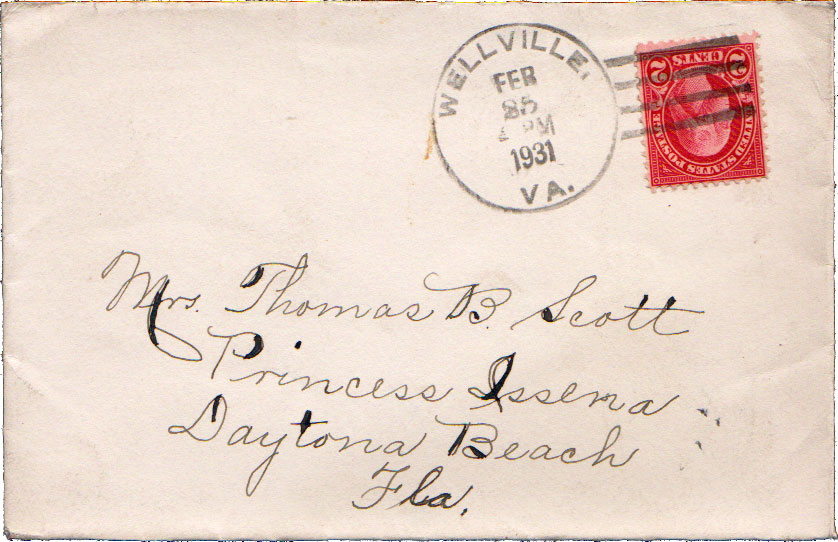 WELLVILLE,
FEB
25
PM
1931
VA.
2 CENTS 2
UNITED STATES POSTAGE
Mrs. Thomas B. Scott
Princess Issena
Daytona Beach
Fla.